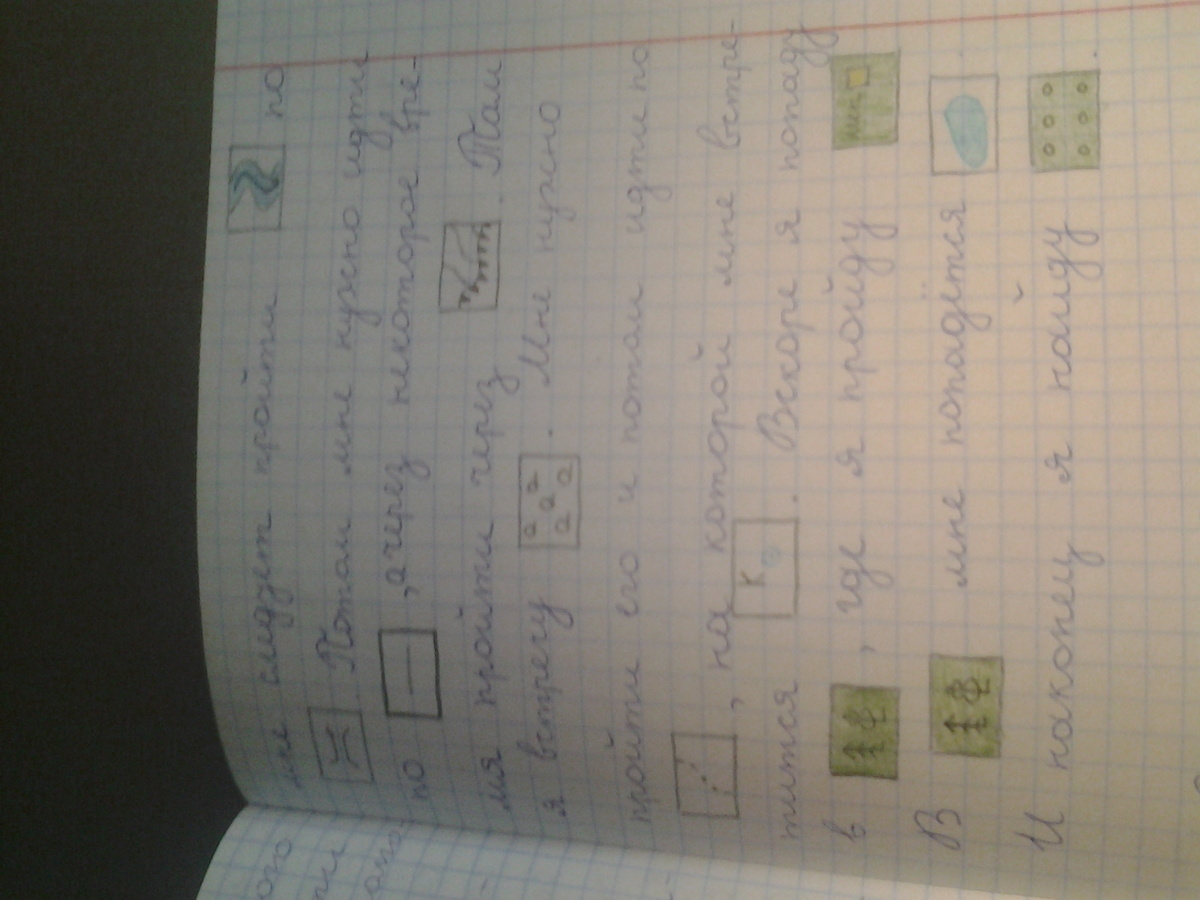 ого
мне следует пройти по
Потом мне нужно идти
по , а через некоторое вре-
мя пройти через . Там
я встречу . Мне нужно
пройти его и потом идти по
, на которой мне встре-
тится К . Вскоре я попаду
в , где я пройду
В мне попадётся .
И наконец я найду .